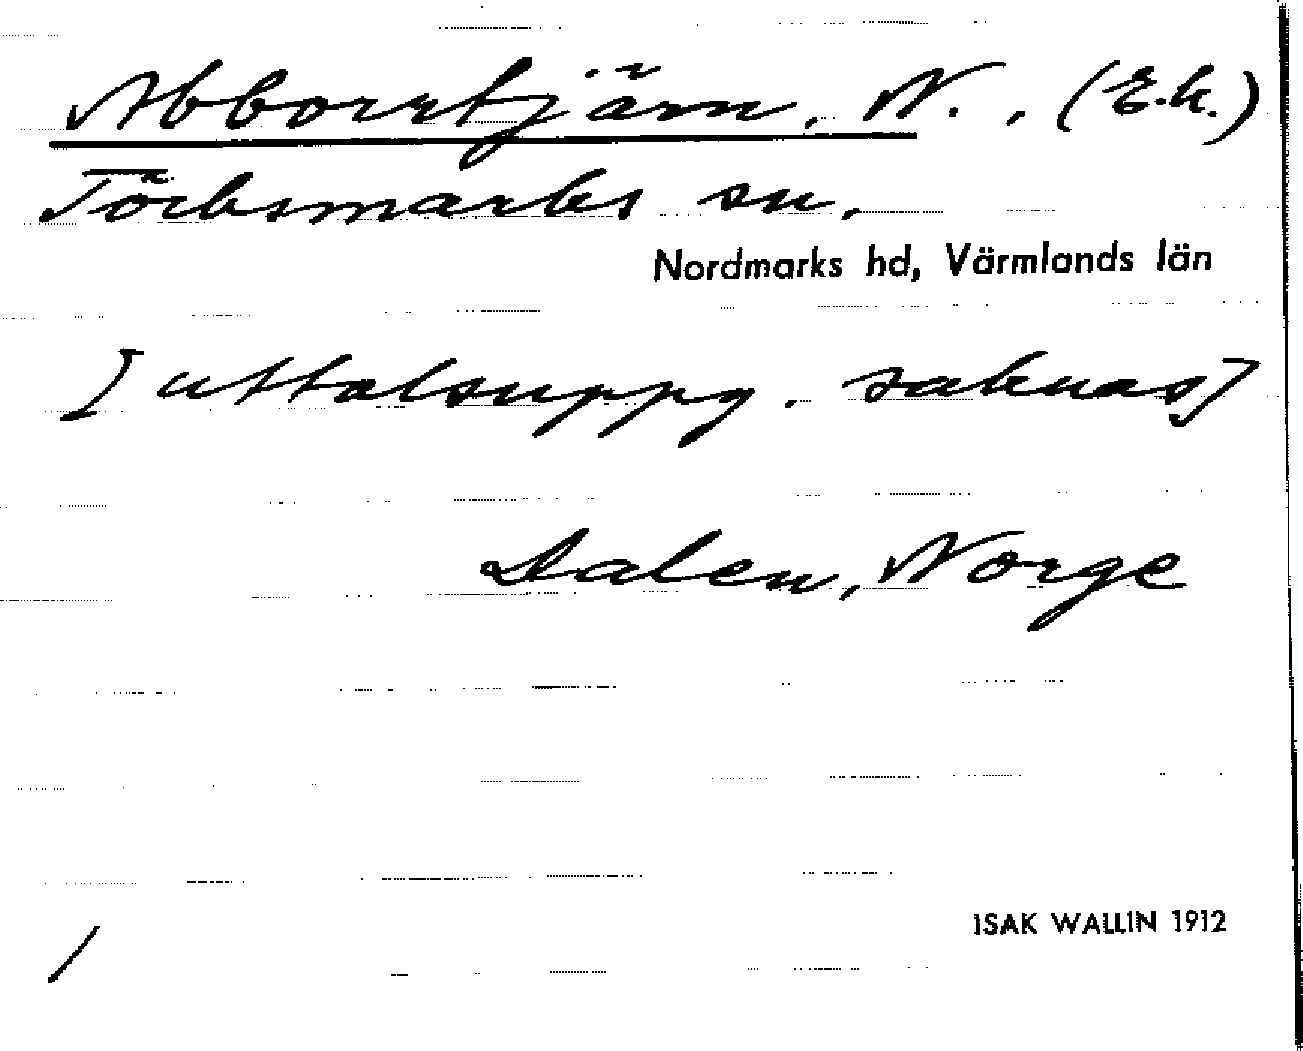 Abborrtjärn, N., (E.k.)
Töcksmarks sn,
Nordmarks hd, Värmlands län
[uttalsuppg. saknas]
Dalen, Norge
ISAK WALLIN 1912
/